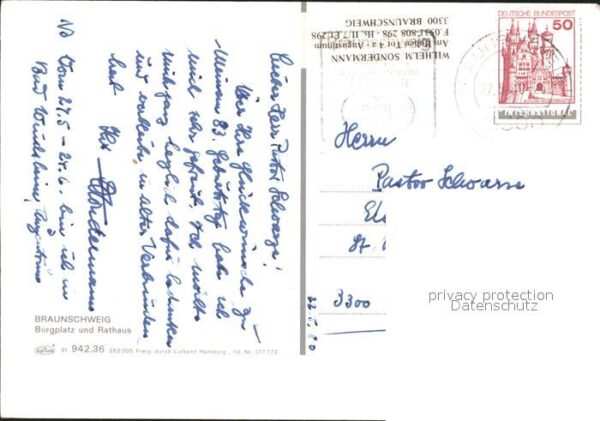 Lieber Herr Pastor Schwarze!
Über Ihre Glückwünsche zu
meinem 83. Geburtstag habe ich
mich sehr gefreut. Ich möchte
nicht herzlich dafür bedanken
und verbleibe in alter Verbundenheit
Ihr
Sondermann
NB Vom 27.5 - 24.6. bin ich in
Bad
BRAUNSCHWEIG
Burgplatz und Rathaus
31 942.36 262 005 Freig. durch Luftamt Hamburg
WILHELM SONDERMANN
Am Hohen Tor 4 a - Augustinum
F. 0531-808 298 - Hs. II. 7 Et. 298
3300 BRAUNSCHWEIG
DEUTSCHE BUNDESPOST
50
Herrn
Pastor Schwarze
St.
3300
22.5.80
privacy protection
Datenschutz